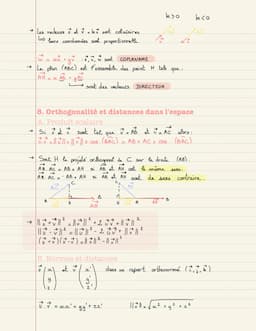 k>0 k<0
→ Les vecteurs u⃗ et v⃗ = k u⃗ sont colinéaires
leurs coordonnées sont proportionnelles.
w⃗ = a u⃗ + y v⃗ : u⃗, v⃗, w⃗ sont COPLANAIRE
→ Le plan (ABC) est l'ensemble des point M tels que :
sont des vecteurs DIRECTEUR
B. Orthogonalité et distances dans l'espace
A. Produit scalaire
→ Si u⃗ et v⃗ sont tel que u⃗ = AB⃗ et v⃗ = AC⃗ alors :
u⃗ . v⃗ = ||u⃗|| × ||v⃗|| × cos (BAC) = AB × AC × cos (BAC)
→ Soit H le projeté orthogonal de C sur la droite (AB) :
AB⃗ . AC⃗ = AB × AH si AB⃗ et AH⃗ ont le même sens.
AB⃗ . AC⃗ = - AB × AH si AB⃗ et AH⃗ sont de sens contraire.
→ ||u⃗ + v⃗||² = ||u⃗||² + 2 u⃗ . v⃗ + ||v⃗||²
||u⃗ - v⃗||² = ||u⃗||² - 2 u⃗ . v⃗ + ||v⃗||²
(u⃗ + v⃗)(u⃗ - v⃗) = ||u⃗||² - ||v⃗||²
B. Normes et distances
u⃗ (x y z) et v⃗ (x' y' z') dans un repère orthonormé (i⃗, j⃗, k⃗)
u⃗ . v⃗ = xx' + yy' + zz' ||u⃗|| = √x² + y² + z²